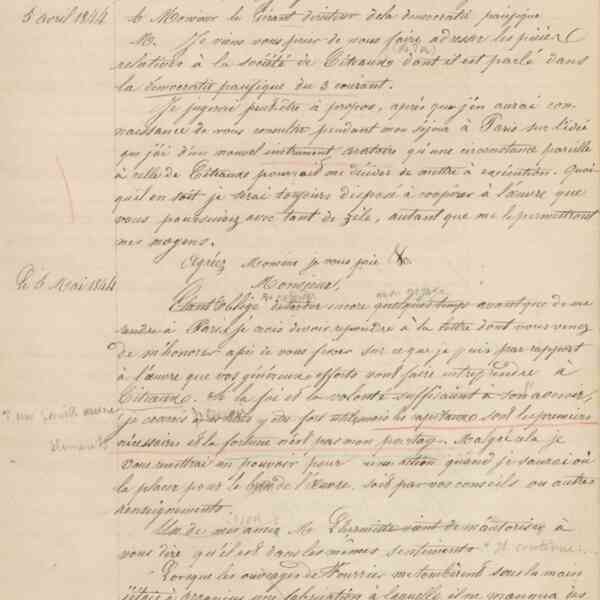 5 avril 1844 à Monsieur le Gérant directeur de la démocratie pacifique
M. Je viens vous prier de nous faire adresser les pièces
relatives à la société de Citeaux dont il est parlé dans
la démocratie pacifique du 3 courant.
Je jugerai peut être à propos, après que j'en aurai con-
naissance de vous consulter pendant mon séjour à Paris sur l'idée
que j'ai d'un nouvel instrument aratoire qu'une circonstance pareille
à celle de Citeaux pourrait me décider de mettre à exécution. Quoi
qu'il en soit je serai toujours disposé à coopérer à l'œuvre que
vous poursuivez avec tant de zèle, autant que me le permettront
mes moyens.
Agréez Monsieur je vous prie &c
Le 6 Mai 1844 Monsieur,
Etant obligé de tarder encore quelques temps avant que de me
rendre à Paris, je crois devoir répondre à la lettre dont vous venez
de m'honorer afin de vous fixer sur ce que je puis par rapport
à l'œuvre que vos généreux efforts vont faire entreprendre à
Citeaux. Si la foi et la volonté suffisaient à son
je y être fort utile mais les capitaux sont les premiers
nécessaires et la fortune n'est pas mon partage. Malgré cela je
vous remettrai un pouvoir pour une action quand je saurai où
la placer pour le de l'œuvre, soit par vos conseils ou autres
renseignements.
Un de mes amis M. Lhermitte vient de m'autoriser à
vous dire qu'il est dans les mêmes sentiments
Lorsque les ouvrages de Fourrier me tombèrent sous la main
j'étais à organiser une fabrication à laquelle il ne manqua des